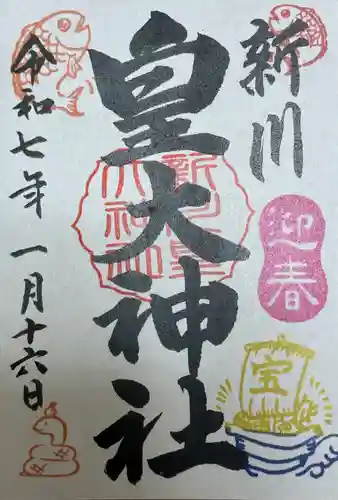 新川
迎春
宝
皇大神社
新川皇大神社
令和七年一月十六日